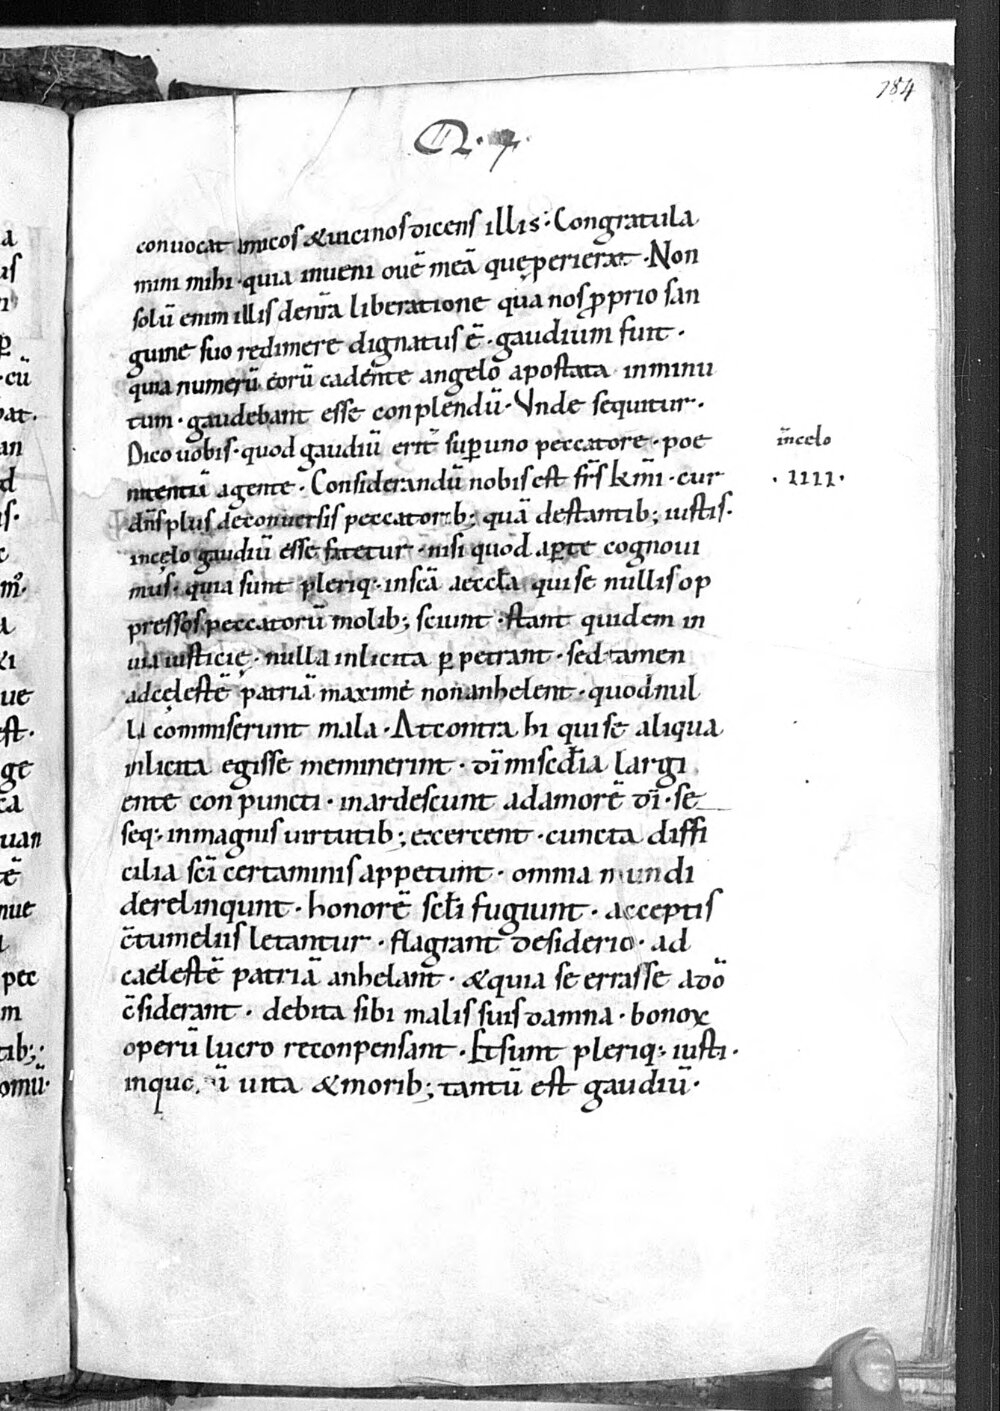 184
Q. 7.
conuocat amicos & uicinos dicens illis· Congratula
mini mihi· quia inueni ouē meā quę perierat· Non
solū enim illis de nr̄a liberatione qua nos ꝓprio san
guine suo redimere dignatus ē· gaudium fuit·
quia numerū eorū cadente angelo apostata inminu
tum· gaudebant esse conplendū· Vnde sequitur·
Dico uobis· quod gaudiū erit sup̱ uno peccatore· poe
nitentiā agente· Considerandū nobis est fr̄s km̄i· cur
dn̄s plus de conuersis peccatorib; quā de stantib; iustis·
in cęlo gaudiū esse fatetur· nisi quod ap̱te cognoui
mus· quia sunt pleriq: in sc̄a aeccl̄a qui se nullis op
pressos peccatorū molib; sciunt· stant quidem in
uia iusticię· nulla inlicita p̱petrant· sed tamen
ad cęlestē patriā maxime non anhelent· quod nul
la commiserunt mala· At contra hi qui se aliqua
inlicita egisse meminerint· dī misc̄dia largi
ente conpuncti· inardescunt ad amorē dī· se
seq: in magnis uirtutib; exercent· cuncta diffi
cilia sc̄i certaminis appetunt· omnia mundi
derelinqunt· honorē scl̄i fugiunt· acceptis
c̄tumeliis letantur· flagrant desiderio· ad
caelestē patriā anhelant· & quia se errasse a dō
c̄siderant· debita sibi malis suis damna· bonoꝝ
operū lucro reconpensant· Et sunt pleriq: iusti·
in quo ū uita & morib; tantū est gaudiū·
in celo
· IIII ·